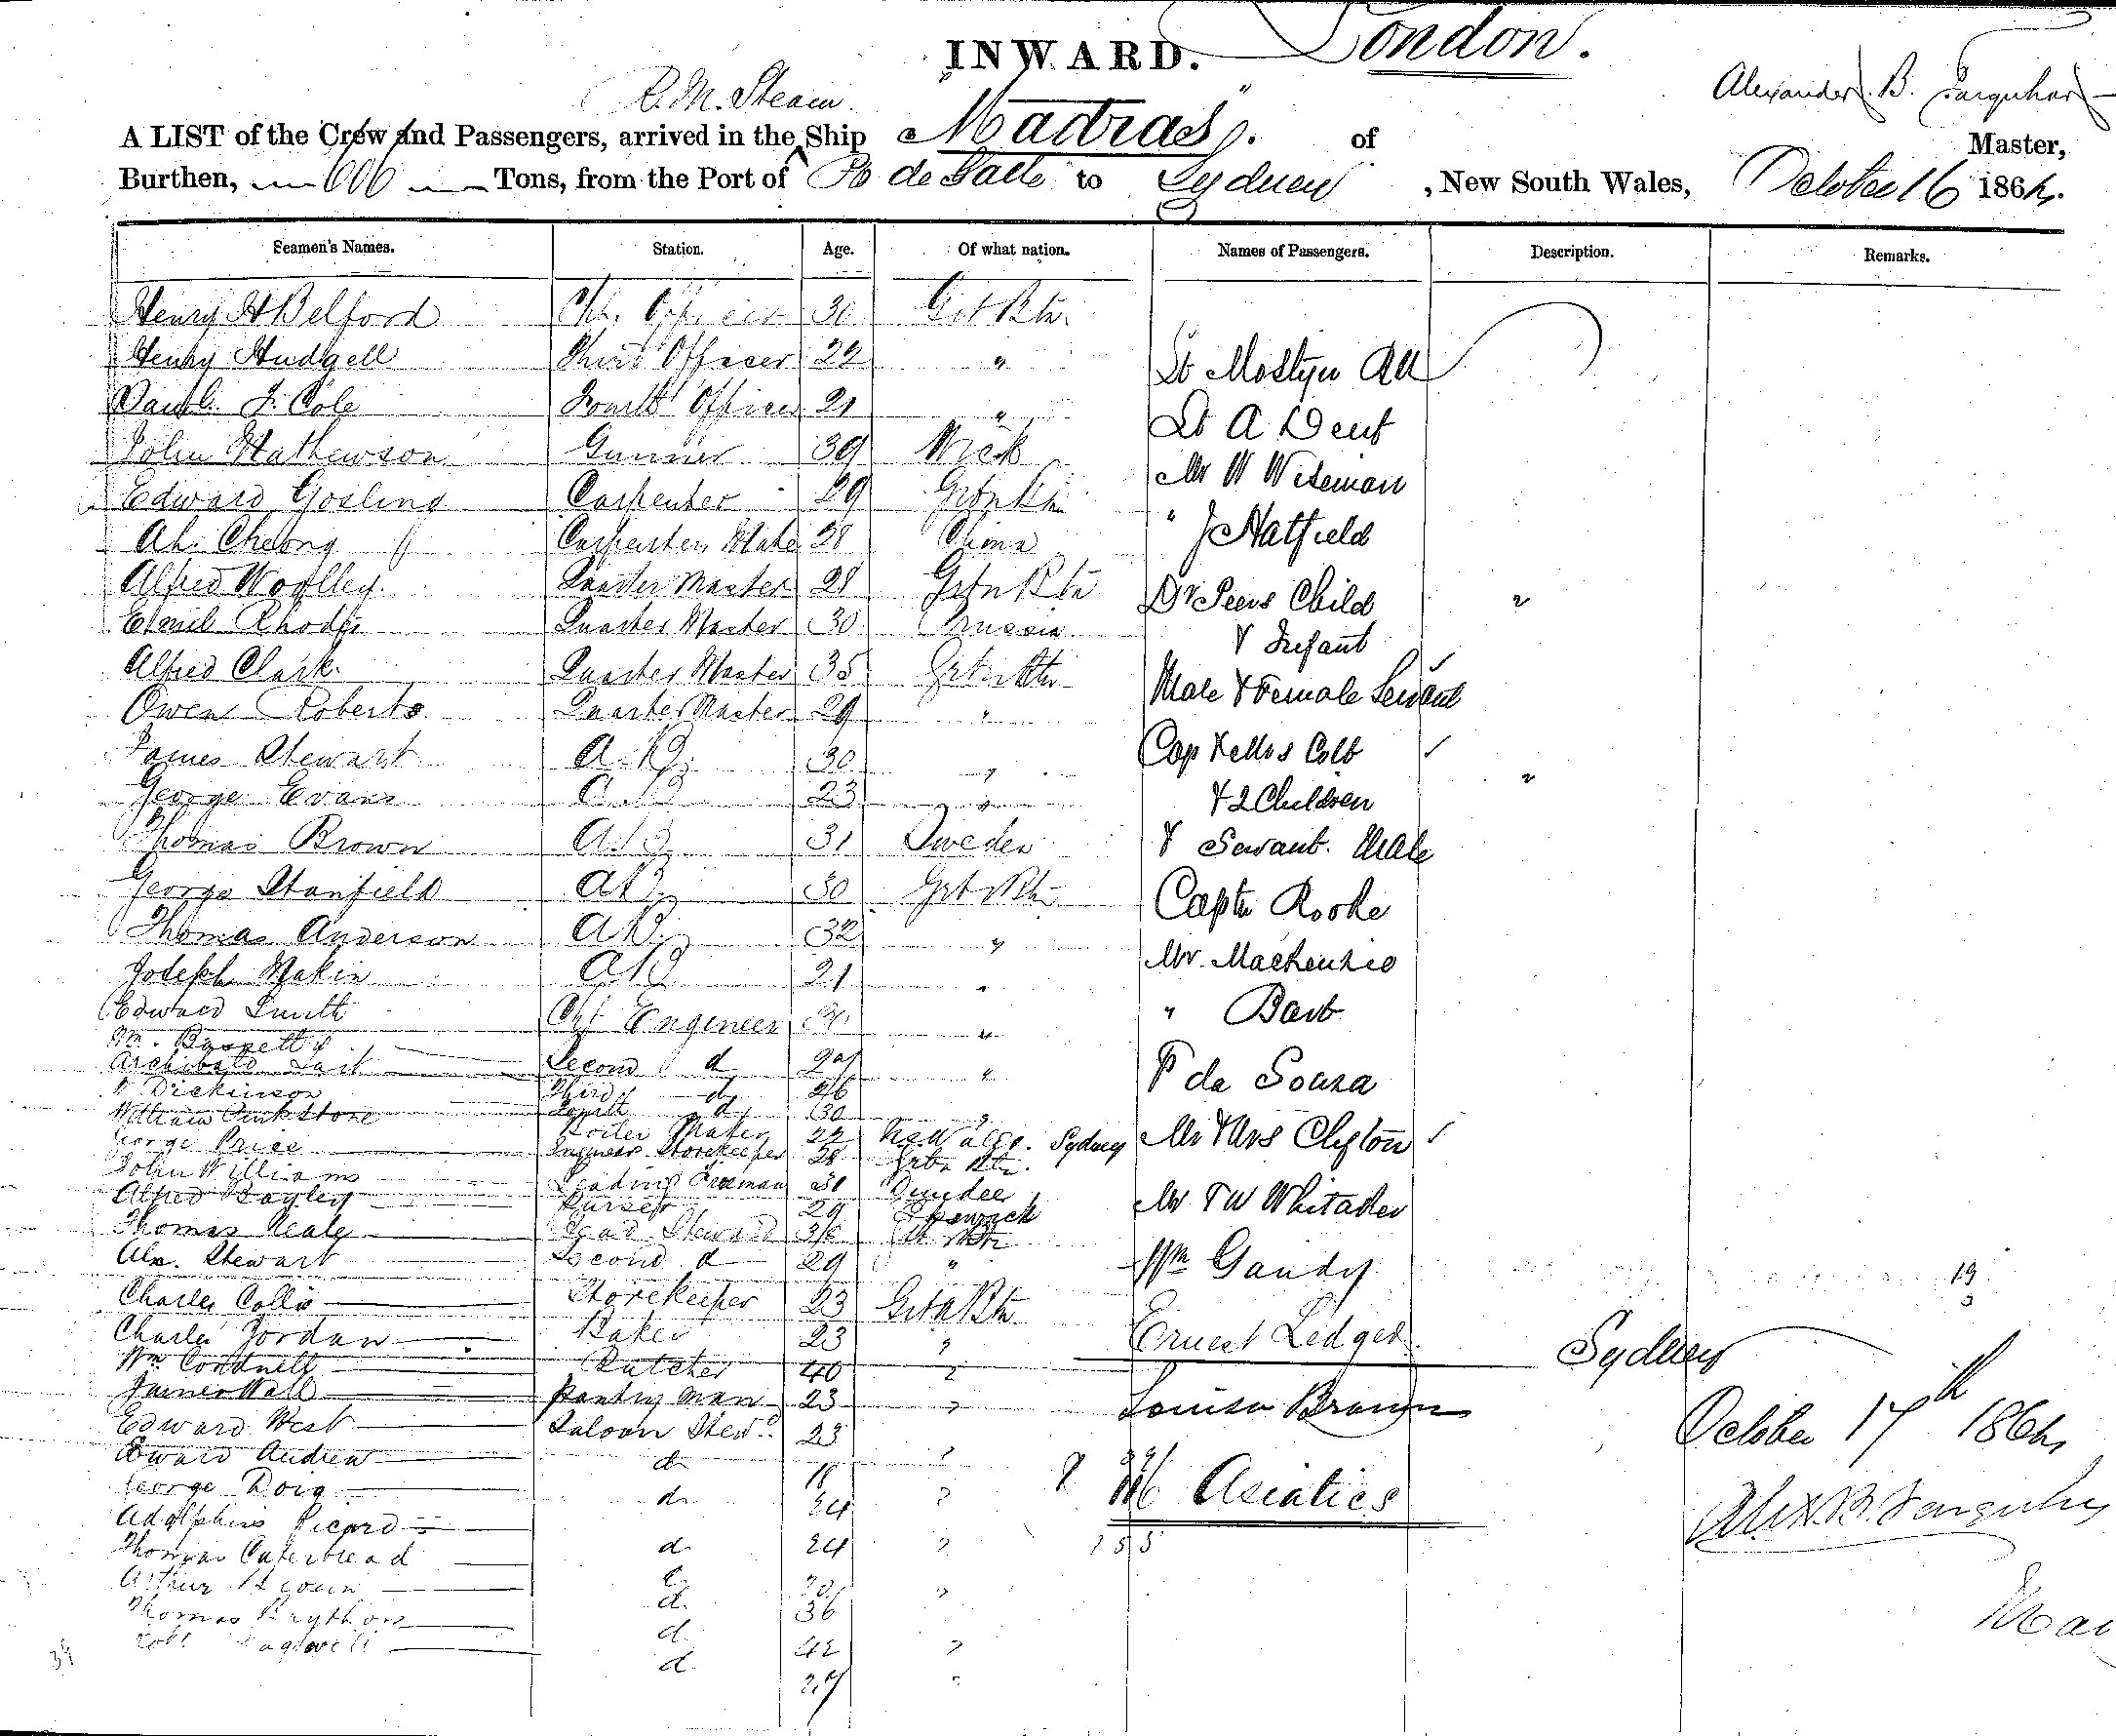 INWARD. London.
R. M. Steam. Alexander B. Farquhar
A LIST of the Crew and Passengers, arrived in the Ship "Madras". of Master,
Burthen, 606 Tons, from the Port of Pt de Galle to Sydney , New South Wales, October 16 1864.
Seamen's Names. Station. Age. Of what nation. Names of Passengers. Description. Remarks.
Henry H Belford Chf. Officer 30 Grt Btn.
Henry Hudgell Third Officer 22 "
J. Cole Fourth Officer 21 "
John Mathewson Gunner 39 Wick
Edward Gosling Carpenter 29 Grtn Btn
Ah. Cheong Carpenters Mate 38 China
Alfred Woolley Quarter Master 28 Grtn Btn
Emil Rhode Quarter Master 30 Prussia
Alfred Clark Quarter Master 35 Grtn Btn
Owen Roberts Quarter Master 29 "
James Stewart A.B. 30 "
George Evans A.B. 23 "
Thomas Brown A.B. 31 Sweden
George Stanfield A.B. 30 Grt Btn
Thomas Anderson A.B. 32 "
Joseph Makin A.B. 21 "
Edward Smith Chf Engineer "
Wm. Bassett Second d "
Archibald Third d 26
Dickinson Fourth d 30 "
William Pinkstone Boiler Maker 22 N. S. Wales. Sydney
George Price Engineers Storekeeper 28 Grtn Btn.
John Williams Leading Fireman 31 Dundee
Alfred Bayley Purser 29
Thomas Neale Head Steward 36 Grt Btn
Alx. Stewart Second d 29 "
Charles Collis Storekeeper 23 Grtn Btn
Charles Jordan Baker 23 "
Wm Cordnell Butcher 40 "
James Wall Pantry man 23 "
Edward West Saloon Stewd 23
Edward Andrew d 18 "
George Doig d 24 "
Adolphus Picard d 24 "
Thomas d "
Arthur d 36
Thomas Brython d 42 "
Robt d "
Lt Mostyn RN
Lt A Dent
Mr W Wiseman
" J Hatfield
Dr Child
& Infant
Male & Female Servant
Cap & Mrs
& 2 Children
& Servant. Male
Captn Rooke
Mr. Mackenzie
"
F da Souza
Mr & Mrs Clifton
Mr T W Whitaker
Wm Gandy
Ernest Ledger
Louisa Brown
Asiatics
155
19
3
Sydney
October 17th 1864
Alex. B. Farquhar